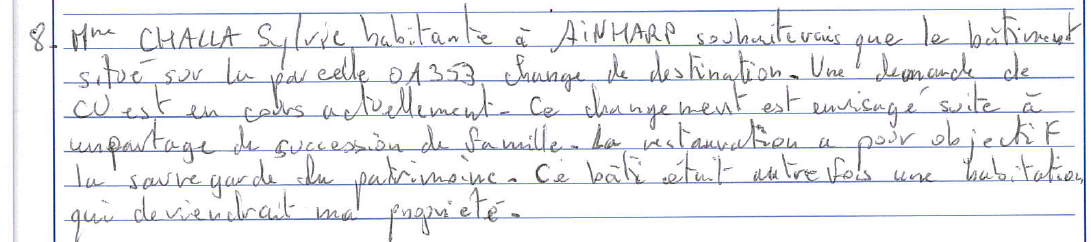 8. Mme CHALLA Sylvie habitante à AINHARP souhaiterais que le bâtiment
situé sur la parcelle 0A353 change de destination. Une demande de
CU est en cours actuellement. Ce changement est envisagé suite à
un partage de succession de famille. La restauration a pour objectif
la sauvegarde du patrimoine. Ce bâti était autrefois une habitation,
qui deviendrait ma propriété.